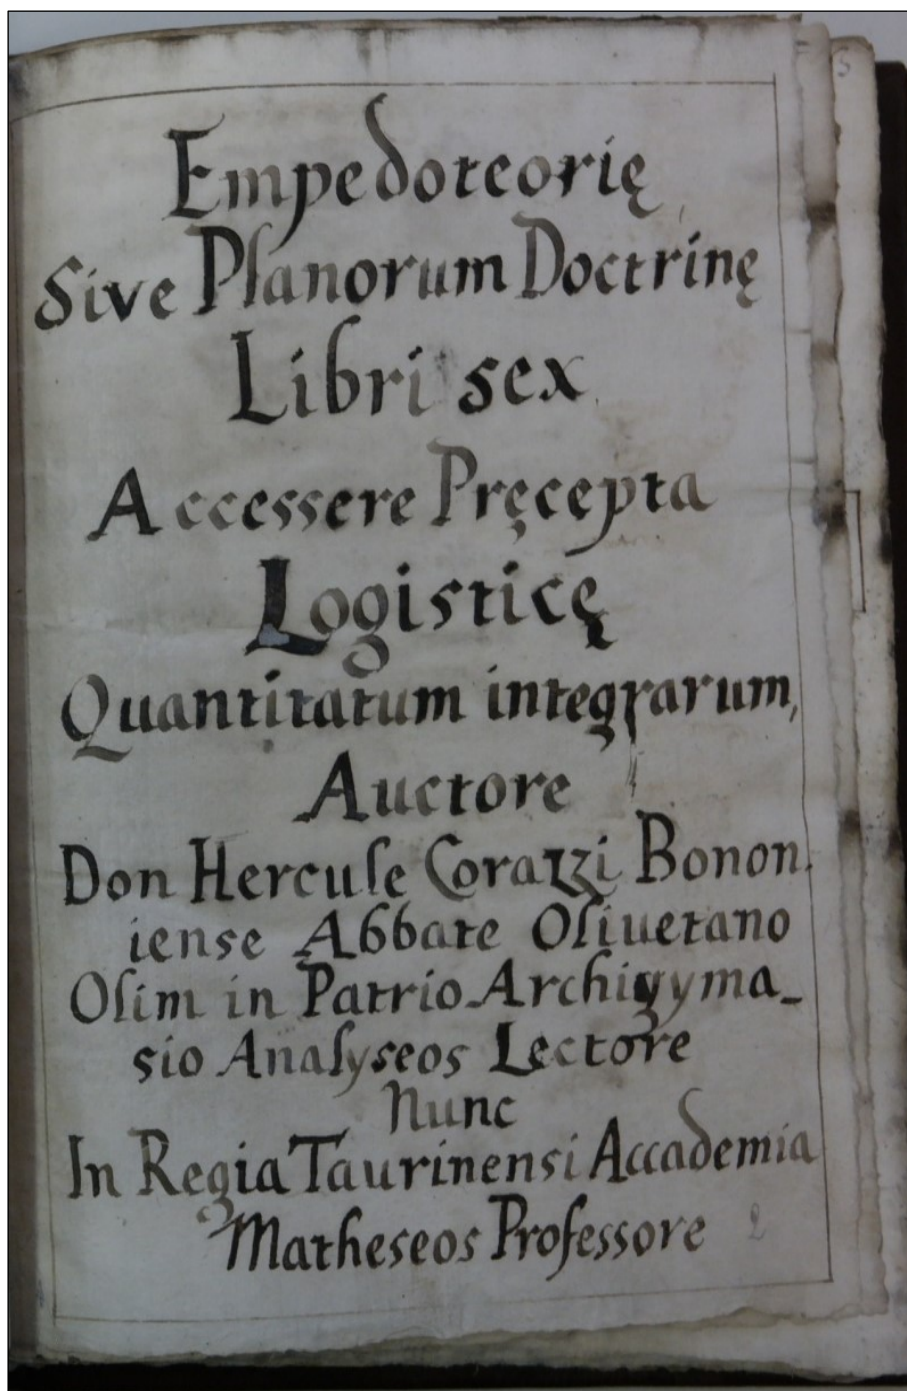 Empedoteorię
sive Planorum Doctrinę
Libri sex
Accessere Pręcepta
Logisticę
Quantitatum integrarum,
Auctore
Don Hercule Corazzi Bonon.
iense Abbate Olivetano
Olim in Patrio Archigyma_
sio Analyseos Lectore
Nunc
In Regia Taurinensi Accademia
Matheseos Professore
2